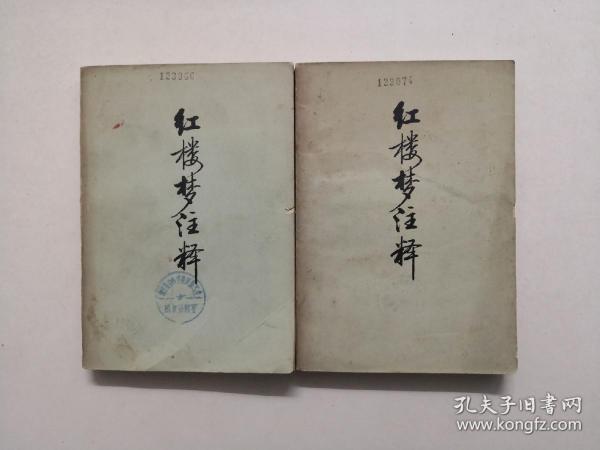 红楼梦注释
红楼梦注释
孔夫子旧书网
www.kongfz.com